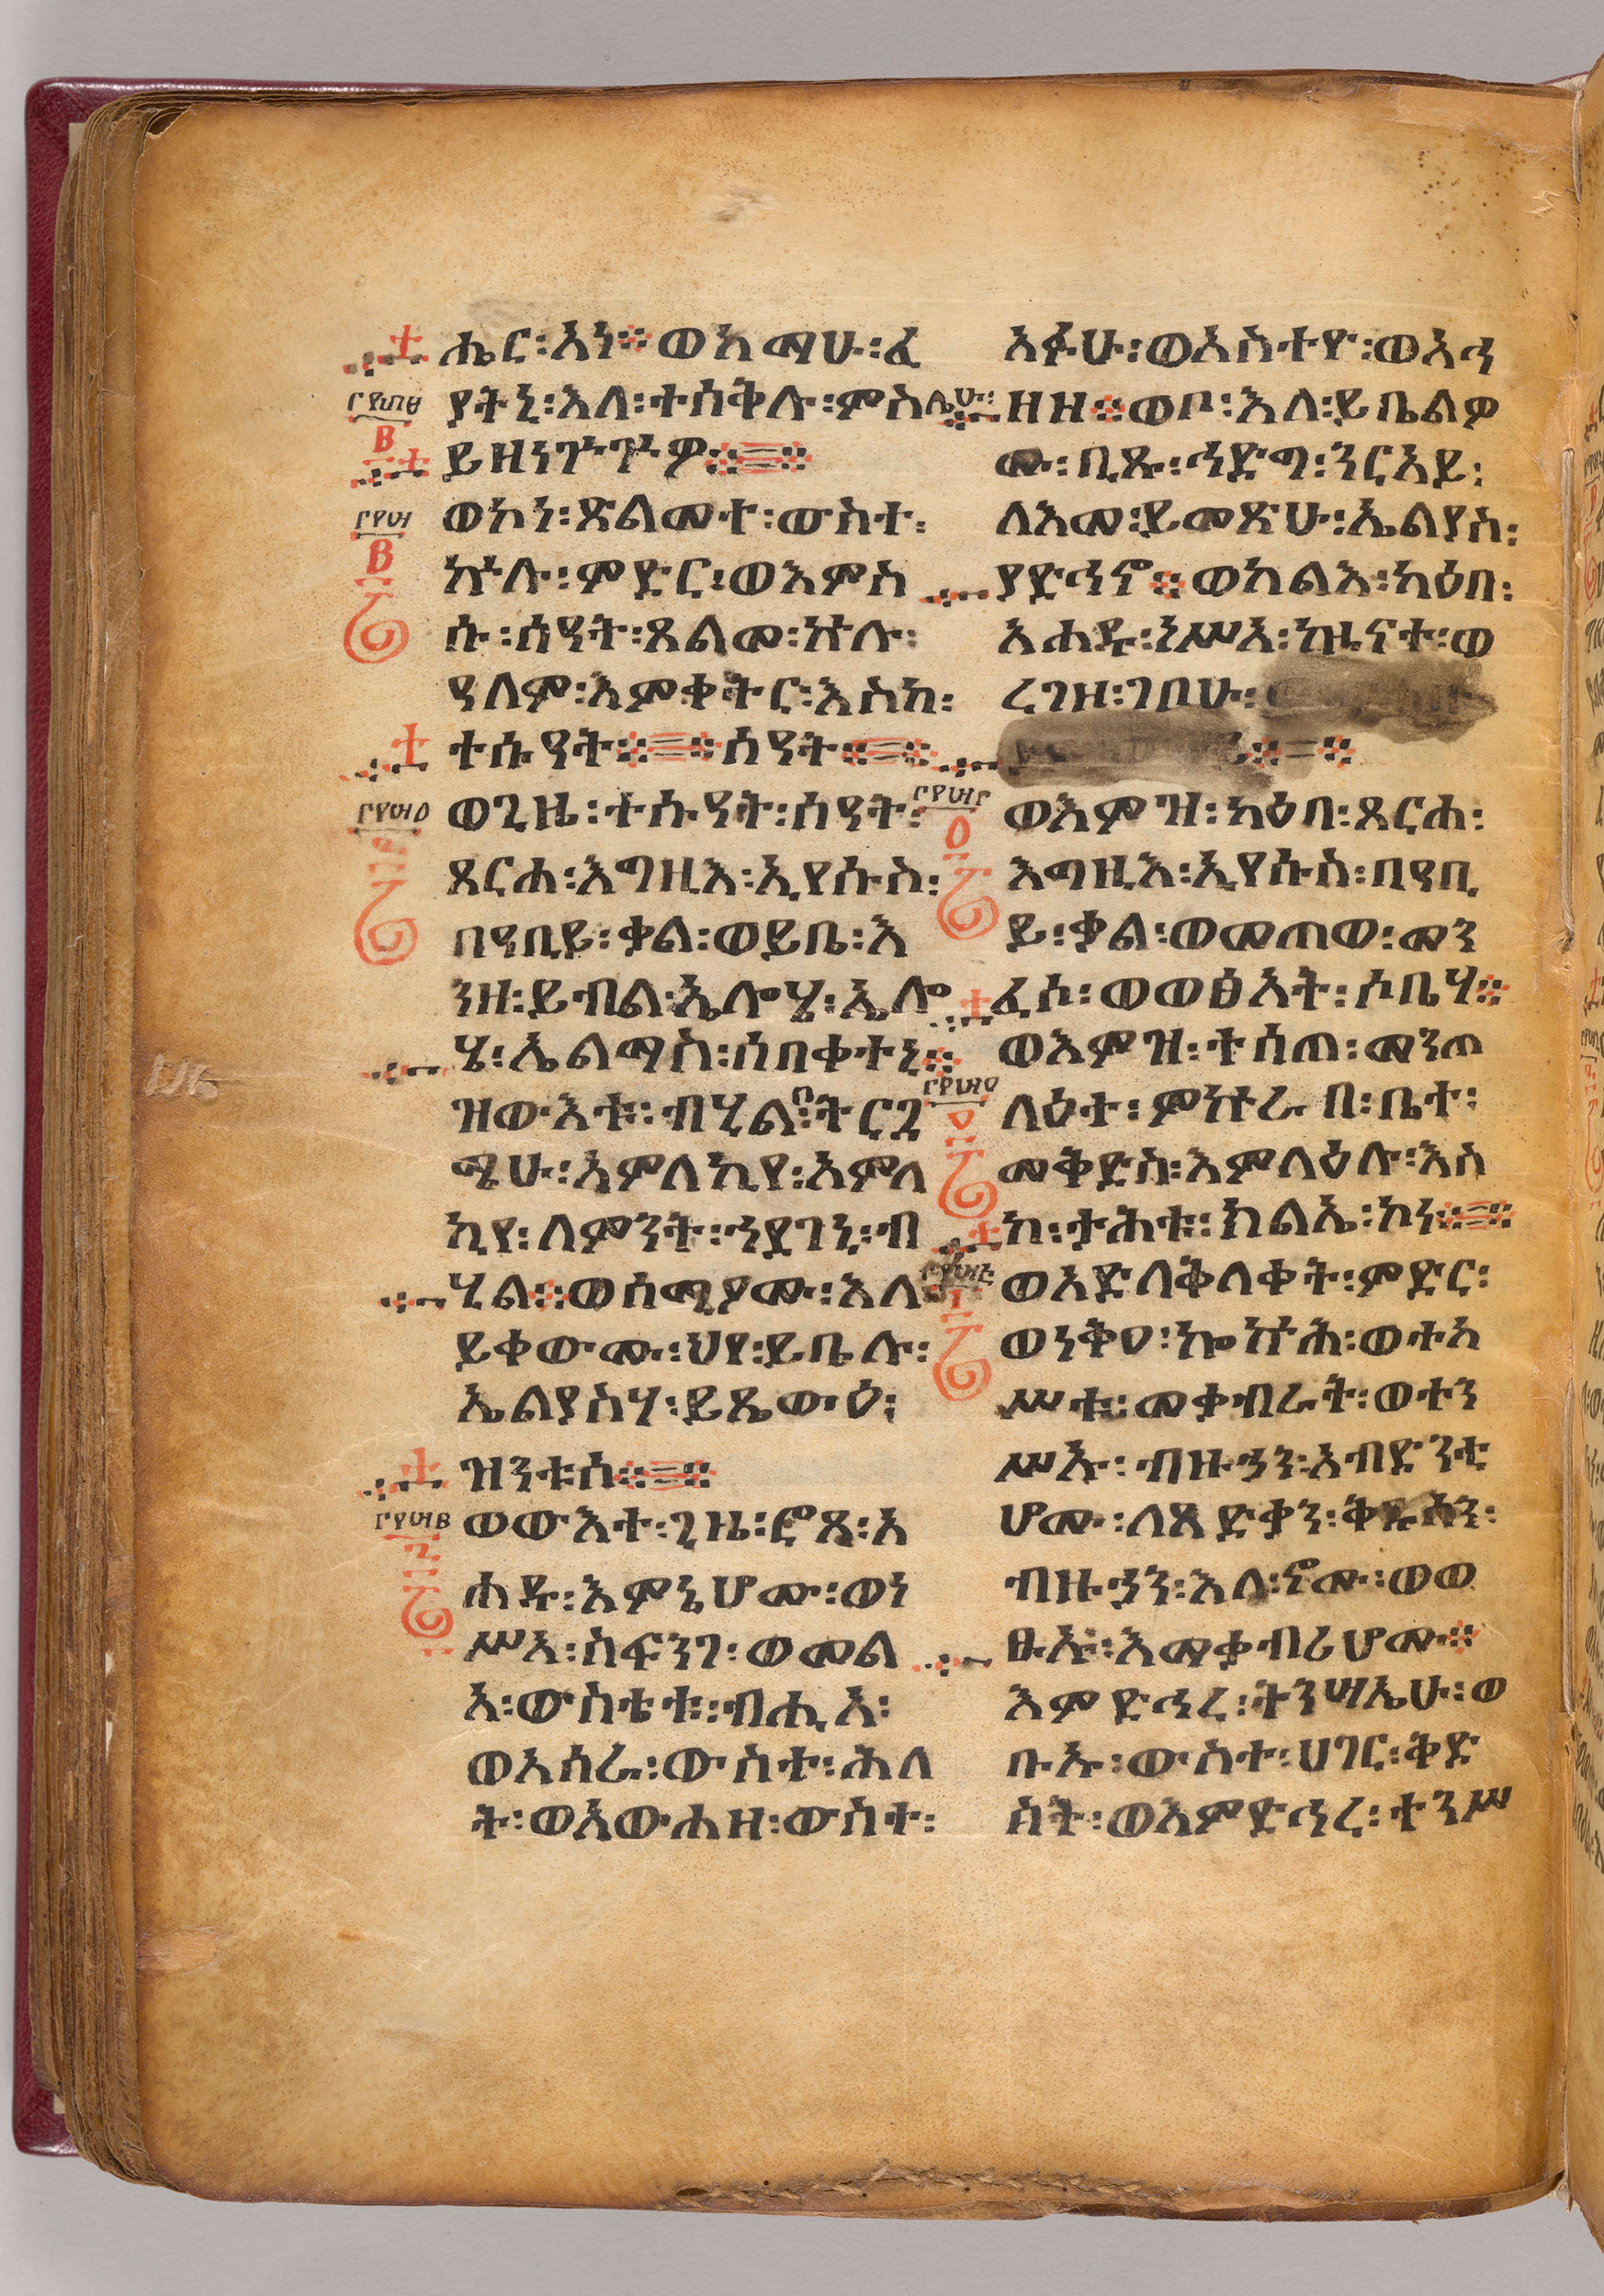 ሔር፡እነ። ወከማሁ፡ፈ
ያትኒ፡እለ፡ተሰቅሉ፡ምስሌሁ፡
ይዘነጕጕዎ።
ወኮነ፡ጽልመት፡ውስተ፡
ኵሉ፡ምድር፡ወእምስ
ሱ፡ሰዓት፡ጸልመ፡ኵሉ፡
ዓለም፡እምቀትር፡እስከ፡
ተሱዓት። ሰዓት።
ወጊዜ፡ተሱዓት፡ሰዓት፡
ጸርሐ፡እግዚእ፡ኢየሱስ፡
በዓቢይ፡ቃል፡ወይቤ፡እ
ንዘ፡ይብል፡ኤሎሄ፡ኤሎ
ሄ፡ኤልማስ፡ሰበቀተኒ።
ዝውእቱ፡ብሂል፡ትርጓ
ሜሁ፡አምላኪየ፡አምላ
ኪየ፡ለምንት፡ኀደገኒ፡ብ
ሂል። ወሰሚዖሙ፡እለ
ይቀውሙ፡ህየ፡ይቤሉ፡
ኤልያስሃ፡ይጼውዕ፡
ዝንቱሰ።
ወውእተ፡ጊዜ፡ሮጸ፡አ
ሐዱ፡እምኔሆሙ፡ወነ
ሥአ፡ስፍንገ፡ወመል
አ፡ውስቴቱ፡ብሒአ፡
ወአሰራ፡ውስተ፡ሕለ
ት፡ወአውሐዘ፡ውስተ፡
አፉሁ፡ወአስተዮ፡ወእን
ዘዘ። ወቦ፡እለ፡ይቤልዎ
ሙ፡ቢጹ፡ኀድግ፡ንርአይ፡
ለእመ፡ይመጽሁ፡ኤልያስ፡
ያድኅኖ። ወካልእ፡ካዕበ፡
አሐዱ፡ነሥአ፡ኵዜናተ፡ወ
ረገዘ፡ገቦሁ፡
ወእምዝ፡ካዕበ፡ጸርሐ፡
እግዚእ፡ኢየሱስ፡በዓቢ
ይ፡ቃል፡ወመጠወ፡መን
ፈሶ፡ወወፅአት፡ሶቤሃ።
ወእምዝ፡ተሰጠ፡መንጦ
ላዕተ፡ምኵራበ፡ቤተ፡
መቅድስ፡እምላዕሉ፡እስ
ከ፡ታሕቱ፡ክልኤ፡ኮነ።
ወአድለቅለቀት፡ምድር፡
ወነቅዐ፡ኰኵሕ፡ወተከ
ሥቱ፡መቃብራት፡ወተን
ሥኡ፡ብዙኃን፡አብድንቲ
ሆሙ፡ለጻድቃን፡ቅዱሳን፡
ብዙኃን፡እለ፡ኖሙ፡ወወ
ፅኡ፡እመቃብሪሆሙ።
እምድኅረ፡ትንሣኤሁ፡ወ
ቦኡ፡ውስተ፡ሀገር፡ቅድ
ስት፡ወእምድኅረ፡ተንሥ